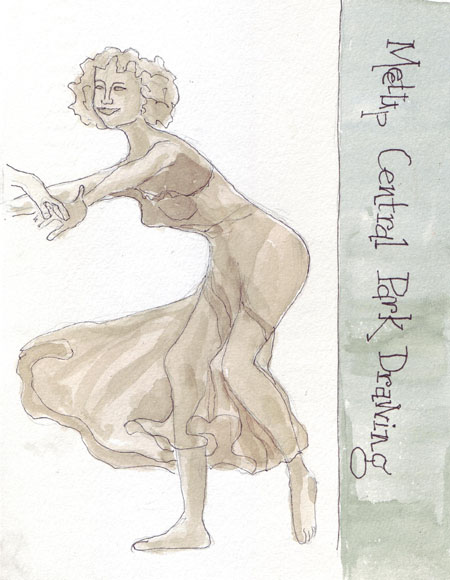 Meetup Central Park Drawing